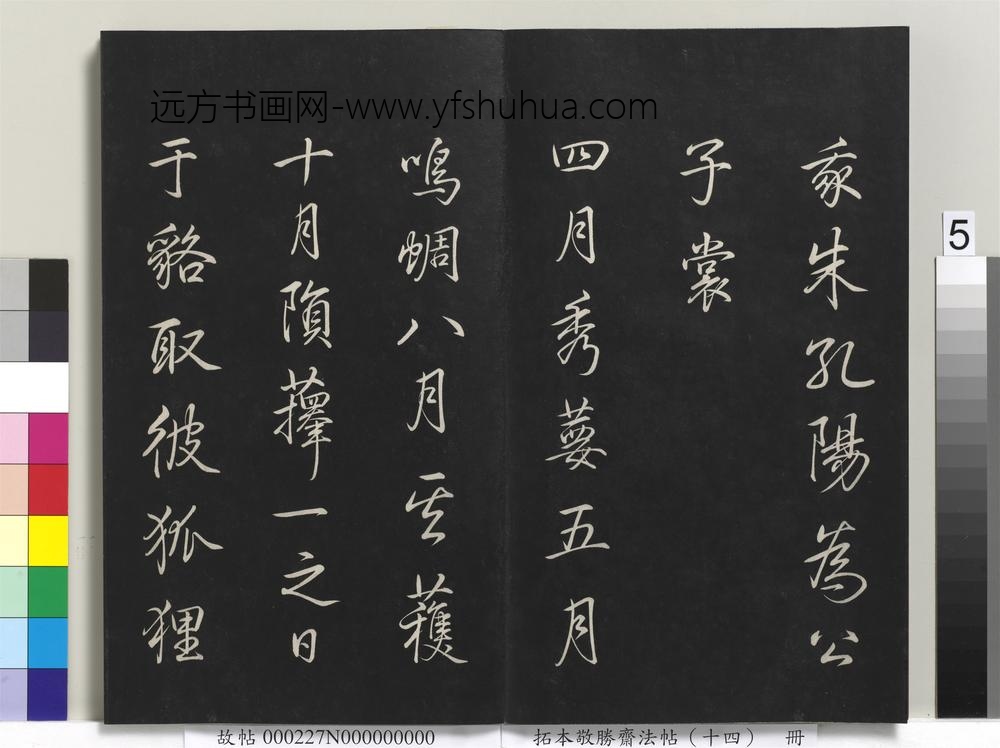 远方书画网-www.yfshuhua.com
我朱孔陽為公
子裳
四月秀葽五月
鳴蜩八月其穫
十月隕蘀一之日
于貉取彼狐狸
5
故帖 000227N000000000
拓本敬勝齋法帖（十四） 冊